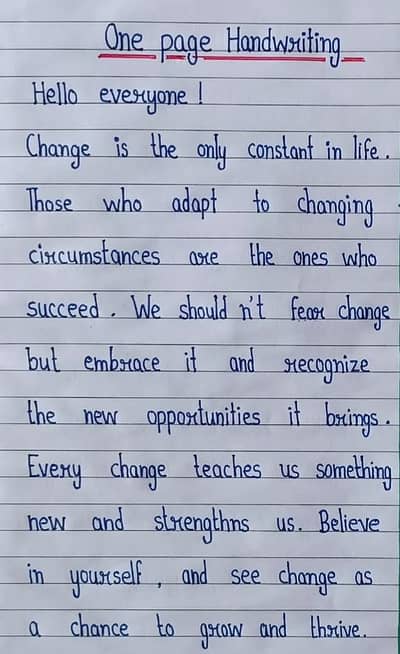 One page Handwriting
Hello everyone !
Change is the only constant in life .
Those who adapt to changing
circumstances are the ones who
succeed . We should n't fear change
but embrace it and recognize
the new opportunities it brings .
Every change teaches us something
new and strengthns us . Believe
in yourself , and see change as
a chance to grow and thrive .